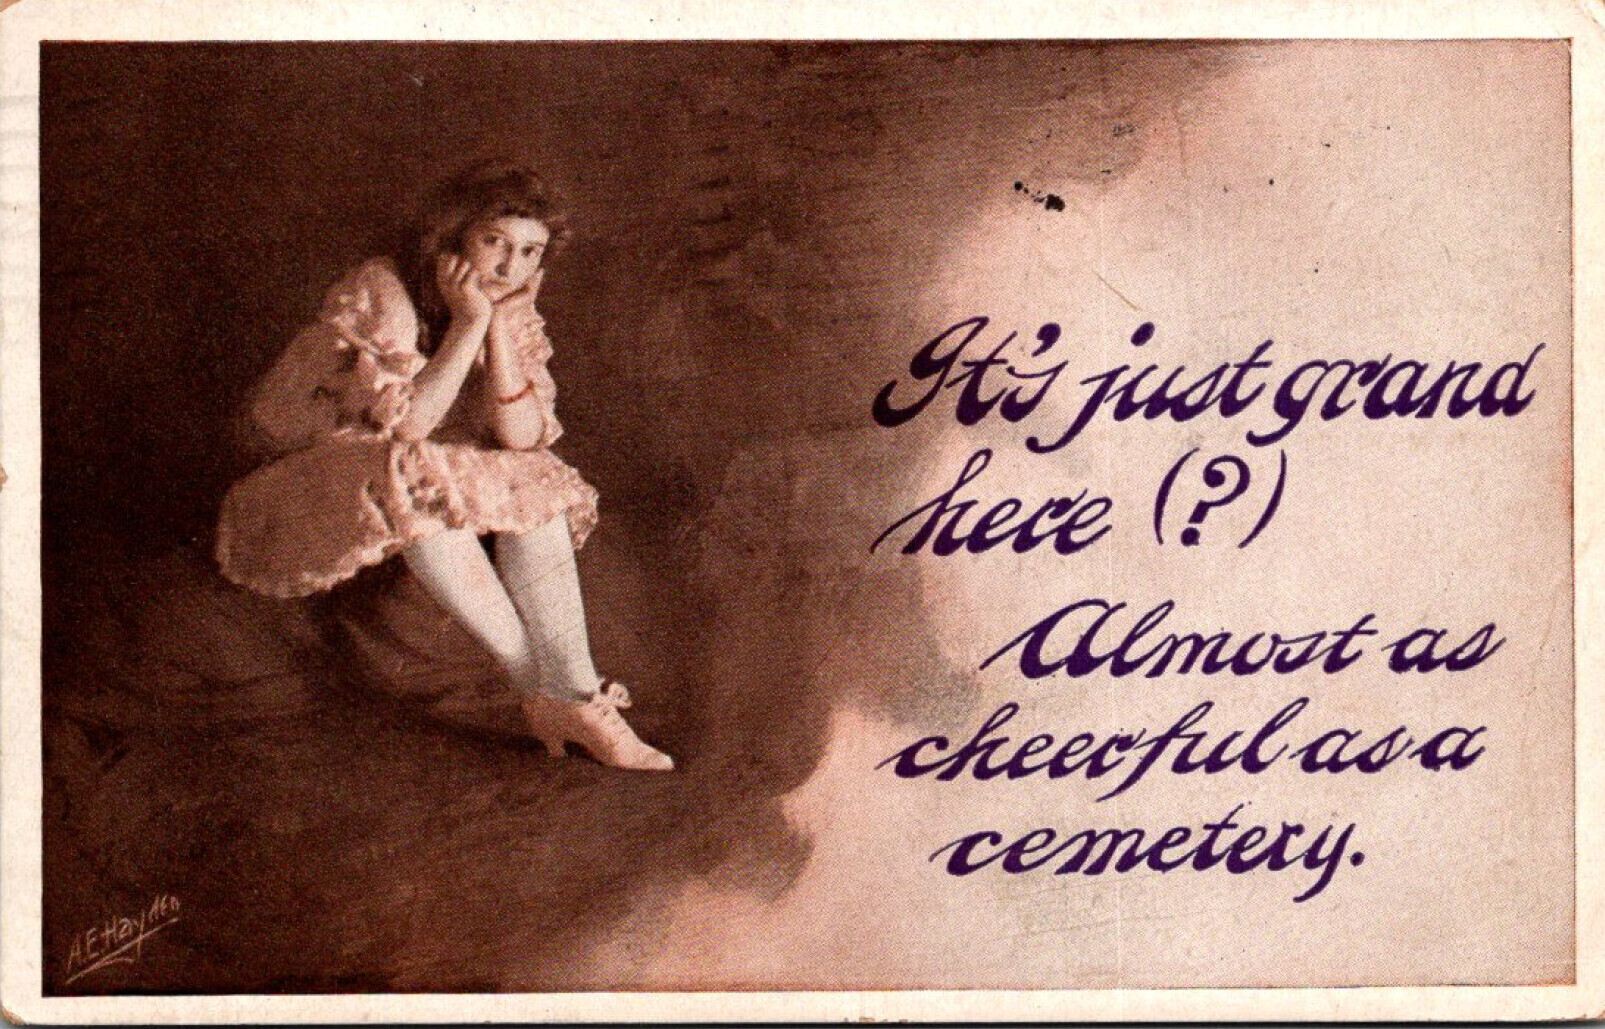 It's just grand
here (?)
Almost as
cheerful as a
cemetery.
A.E. Hayden